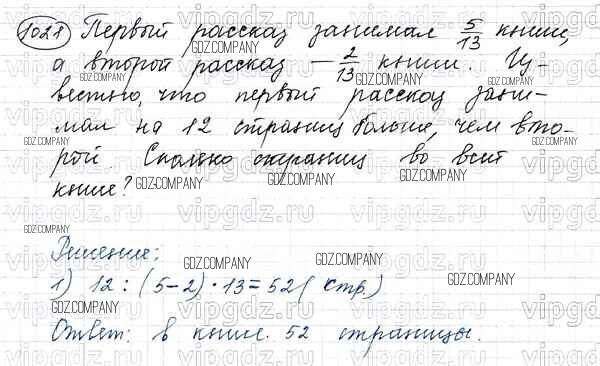 1028 Первый рассказ занимал 5/13 книги,
а второй рассказ — 2/13 книги. Из-
вестно, что первый рассказ зани-
мал на 12 страниц больше, чем вто-
рой. Сколько страниц во всей
книге?
Решение:
1) 12 : (5-2) · 13 = 52 (стр.)
Ответ: в книге 52 страницы.
GDZ.COMPANY
vipgdz.ru